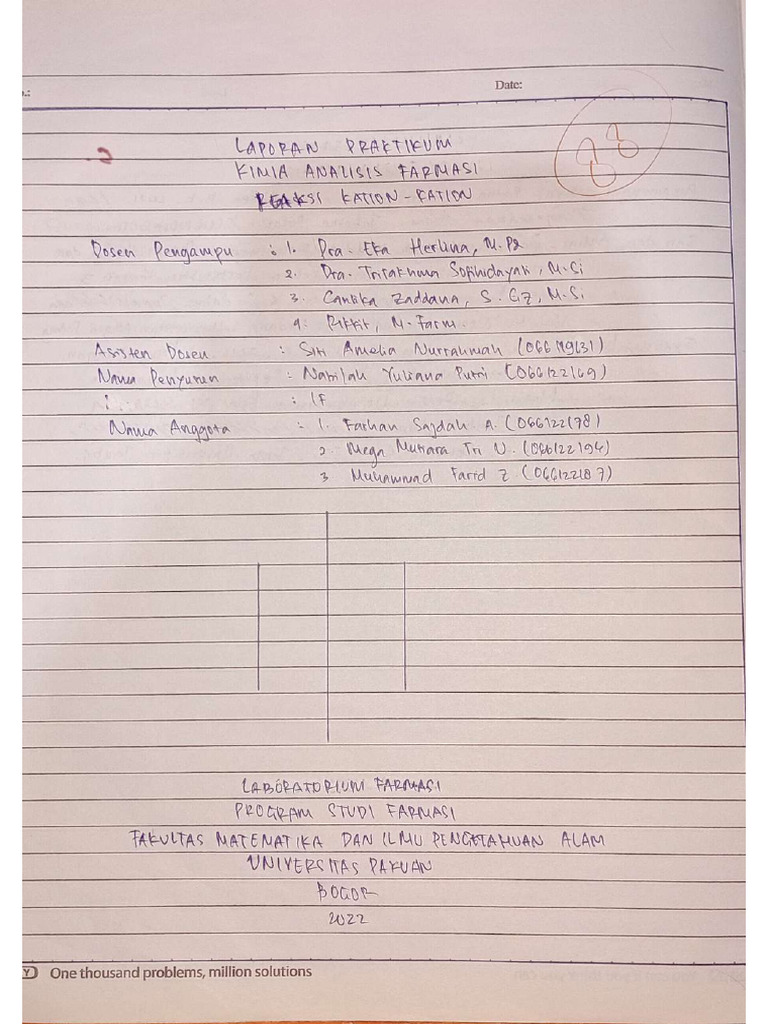 Date:
88
LAPORAN PRAKTIKUM
KIMIA ANALISIS FARMASI
REAKSI KATION-KATION
Dosen Pengampu : 1. Dra. Eka Herlina, M.Pd
2. Dra. Tritakhma Sofihidayati, M.Si
3. Cantika Zaddana, S.Gz, M.Si
4. M. Farm
Asisten Dosen : Siti Amelia Nurrahmah (066119631)
Nama Penyusun : Nabilah Yuliana Putri (066122169)
: 1F
Nama Anggota : 1. Farhan Sajdah A. (066122178)
2. Mega Mutiara Tri U. (066122194)
3 Muhammad Farid Z (066122187)
LABORATORIUM FARMASI
PROGRAM STUDI FARMASI
FAKULTAS MATEMATIKA DAN ILMU PENGETAHUAN ALAM
UNIVERSITAS PAKUAN
BOGOR
2022
One thousand problems, million solutions